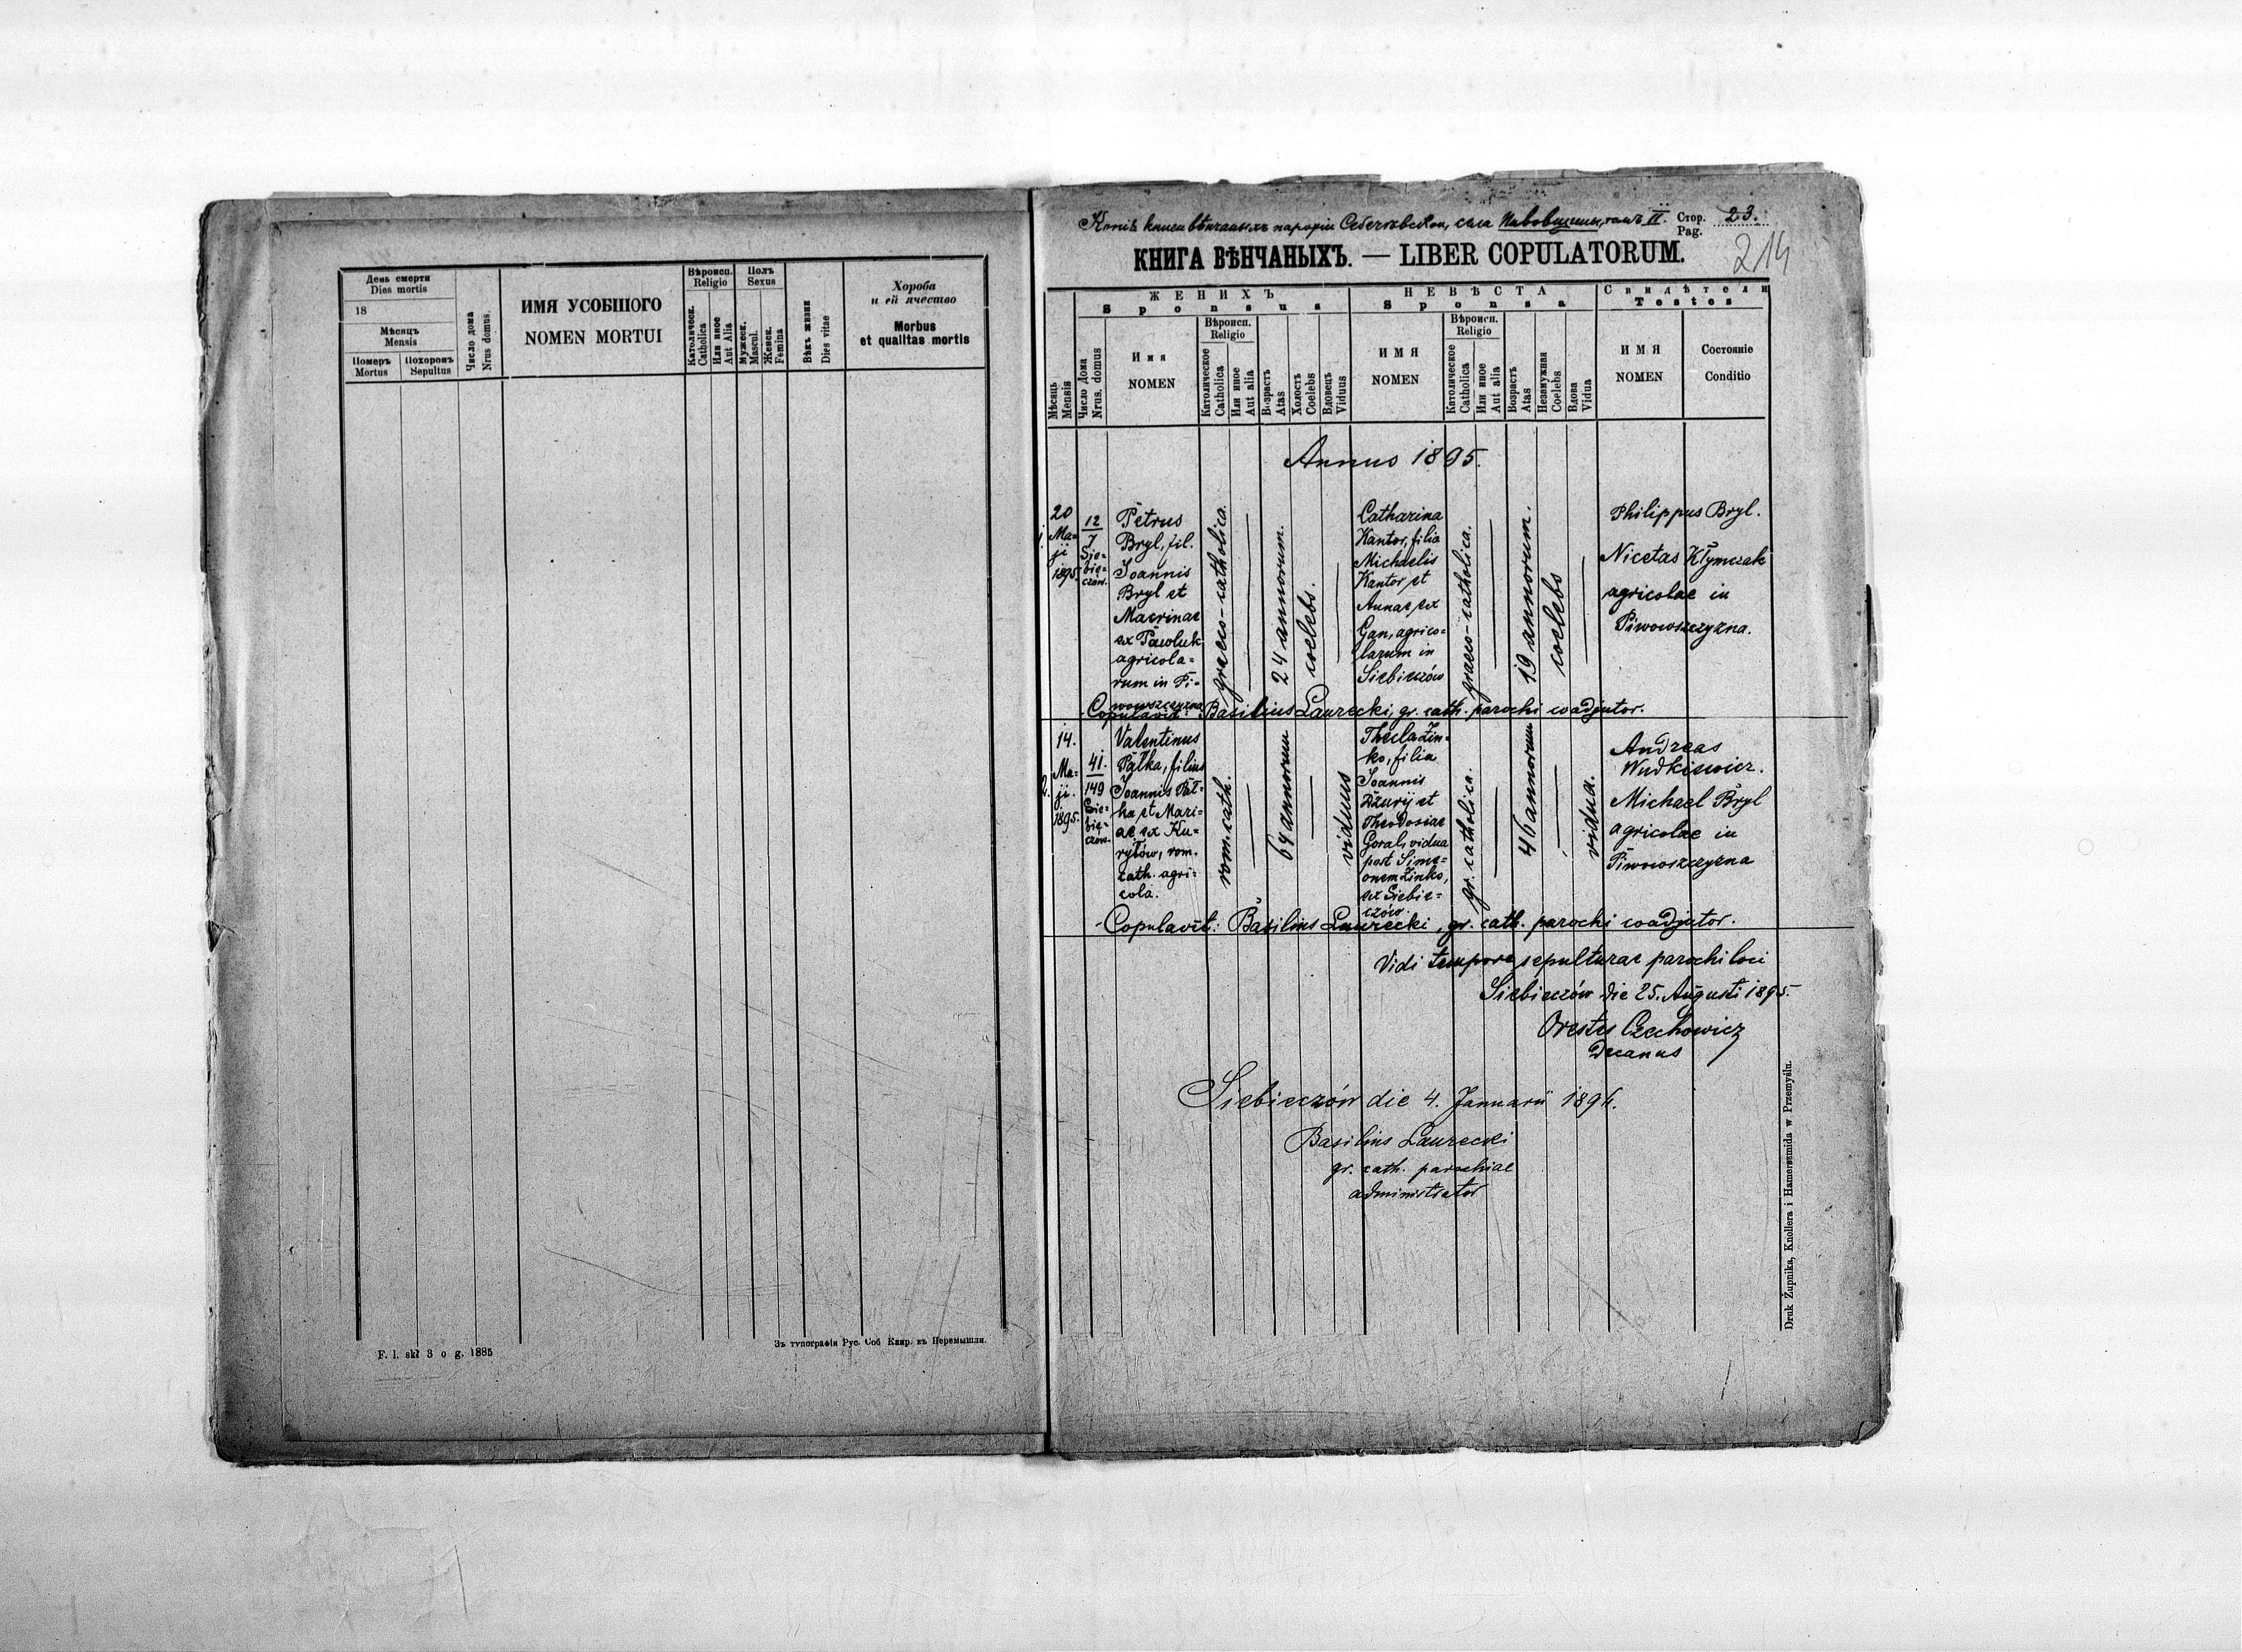 День смерти
Dies mortis
18
Мѣсяцъ
Mensis
Померъ
Mortus
Похоронъ
Sepultus
Число дома
Nrus domus.
ИМЯ УСОБШОГО
NOMEN MORTUI
Вѣроисп.
Religio
Католическ.
Catholica
Или иное
Aut Alia
Полъ
Sexus
Мужеск.
Mascul.
Женск.
Femina
Вѣкъ жизни
Dies vitae
Хороба
и ей ячество
Morbus
et qualitas mortis
F. l. skł 3 o g. 1885
Зъ типографіи Рус. Соб Капр. въ Перемышли.
Копія книги вѣнчаныхъ парохіи Себечѣвскои, села Пивовщины, томъ II. Стор. 23.
Pag.
214
КНИГА ВѢНЧАНЫХЪ. — LIBER COPULATORUM.
Мѣсяць
Mensis
Число Дома
Nrus. domus
ЖЕНИХЪ
Sponsus
Имя
NOMEN
Вѣроисп.
Religio
Католическое
Catholica
Или иное
Aut alia
Возрастъ
Atas
Холостъ
Coelebs
Вдовецъ
Viduus
НЕВѢСТА
Sponsa
ИМЯ
NOMEN
Вѣроисп.
Religio
Католическое
Catholica
Или иное
Aut alia
Возрастъ
Atas
Незамужная
Coelebs
Вдова
Vidua
Свидѣтели
Testes
ИМЯ
NOMEN
Состояніе
Conditio
Annus 1895.
1.
20
Ma=
ji
1895
12
7
Sie=
bie=
czów.
Petrus
Bryl, fil.
Joannis
Bryl et
Macrinae
ex Pawluk
agricola=
rum in Pi=
wowszczyzna
graeco-catholica.
24 annorum.
coelebs.
Catharina
Kantor, filia
Michaelis
Kantor et
Annae ex
Gan, agrico=
larum in
Siebieczów
graeco-catholica.
19 annorum.
coelebs
Philippus Bryl.
Nicetas Kłymczak
agricolae in
Piwowszczyzna.
Copulavit: Basilius Laurecki, gr. cath. parochi coadjutor.
2.
14.
Ma=
ji.
1895.
41.
149
Sie=
bie=
czów.
Valentinus
Pałka, filius
Joannis Pał=
ka et Mari=
ae ex Ku=
ryłów, rom.
cath. agri=
cola.
rom. cath.
64 annorum
viduus
Thecla Zin=
ko, filia
Joannis
Dżuryj et
Theodosiae
Goral, vidua
post Sime=
onem Zinko,
ex Siebie=
czów.
gr. catholica.
46 annorum
vidua.
Andreas
Wudkiewicz.
Michael Bryl
agricolae in
Piwowszczyzna
Copulavit: Basilius Laurecki, gr. cath. parochi coadjutor.
Vidi tempore sepulturae parochi loci
Siebieczów die 25. Augusti 1895.
Orestes Czechowicz
Decanus
Siebieczów die 4. Januarii 1896.
Basilius Laurecki
gr. cath. parochiae
administrator
Druk Żupnika, Knollera i Hamerszmida w Przemyślu.